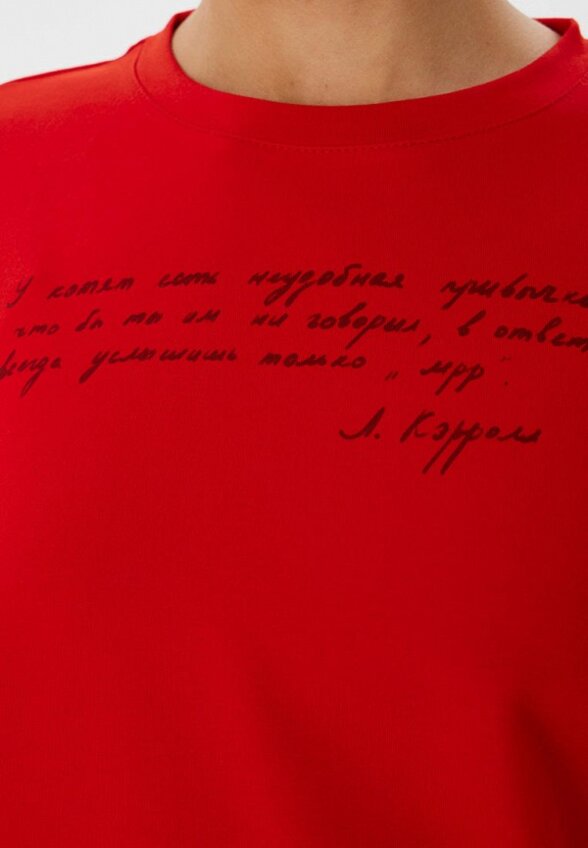 У котят есть неудобная привычка
что бы ты им ни говорил, в ответ
всегда услышишь только „мрр".
Л. Кэррол